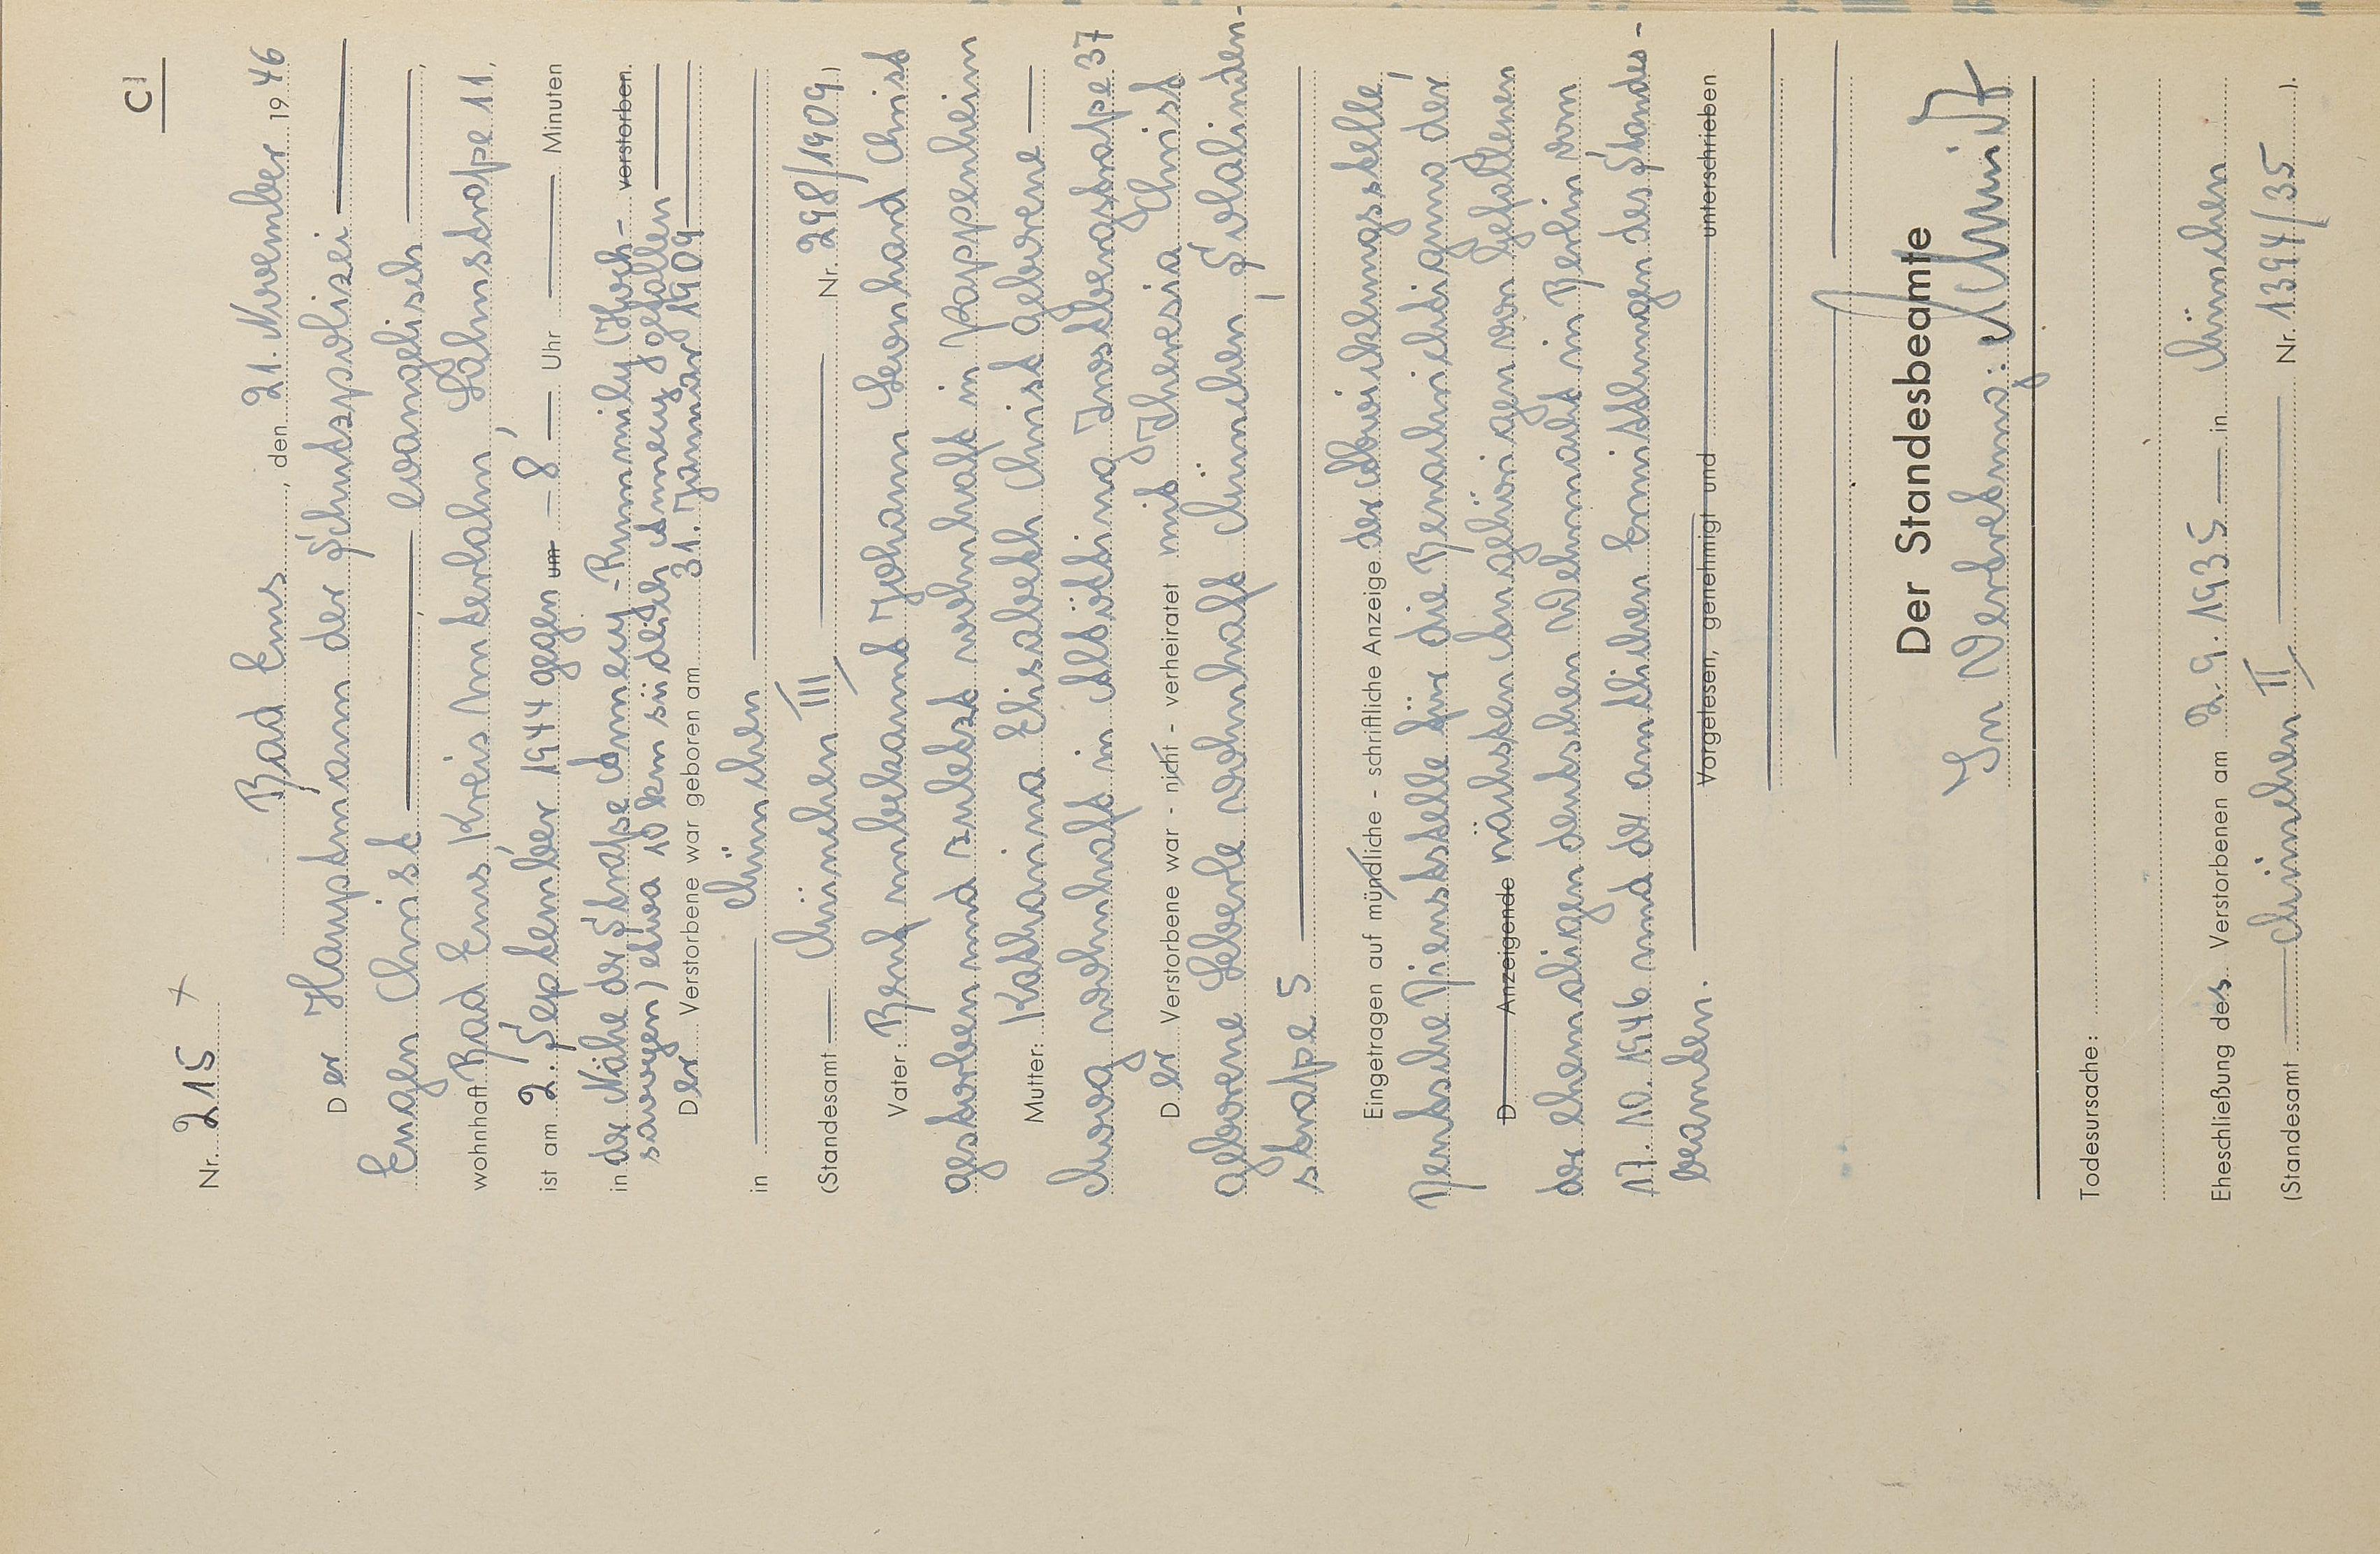 C I
Nr. 215
Bad Ems, den 21. November 1946
Der Hauptmann der Schutzpolizei
Eugen Christ, evangelisch,
wohnhaft Bad Ems Kreis Unterlahn, Lahnstraße 11,
ist am 2. September 1944 gegen um - 8 Uhr Minuten
in der Nähe der Straße Annecy-Rummily (Hoch- verstorben.
savoyen) etwa 10 km südlich Annecy gefallen
Der Verstorbene war geboren am 31. Januar 1909
in München
(Standesamt München III Nr. 298/1909)
Vater: Beruf unbekannt Johann Leonhard Christ
gestorben und zuletzt wohnhaft in Pappenheim
Mutter: Katharina Elisabeth Christ geborene
wohnhaft in Altötting, Trostbergstraße 37
Der Verstorbene war - nicht - verheiratet mit Theresia Christ
geborene Leberle wohnhaft München, Solalinden-
straße 5
Eingetragen auf mündliche - schriftliche Anzeige der Abwicklungsstelle,
Deutsche Dienststelle für die Benachrichtigung der
D Anzeigende nächsten Angehörigen von Gefallenen
der ehemaligen deutschen Wehrmacht in Berlin vom
17. 10. 1946 und der amtlichen Ermittlungen des Standes-
beamten.
Vorgelesen, genehmigt und unterschrieben
Der Standesbeamte
In Vertretung: Schmidt
Todesursache:
Eheschließung des Verstorbenen am 2. 9. 1935 in München
(Standesamt München II Nr. 1394/35).